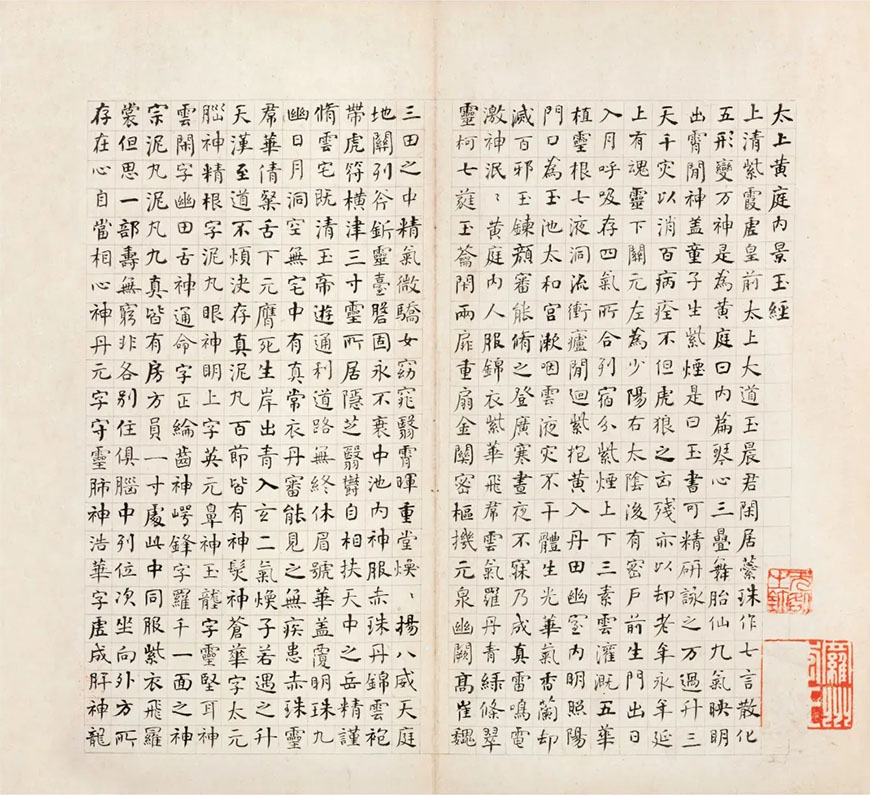 太上黃庭內景玉經
上清紫霞虛皇前太上大道玉晨君閑居蘂珠作七言散化
五形變万神是為黃庭曰內篇琴心三疊舞胎仙九氣映明
出霄閒神盖童子生紫煙是曰玉書可精研詠之万過升三
天千灾以消百病痊不但虎狼之凶殘亦以却老年永年延
上有魂靈下關元左為少陽右太陰後有密戶前生門出日
入月呼吸存四氣所合列宿分紫煙上下三素雲灌溉五華
植靈根七液洞流衝廬閒迴紫抱黃入丹田幽室內明照陽
門口為玉池太和宮漱咽雲液灾不干體生光華氣香蘭却
滅百邪玉鍊顏審能脩之登廣寒晝夜不寐乃成真雷鳴電
激神泯〻黃庭內人服錦衣紫華飛帬雲氣羅丹青綠條翠
靈柯七蕤玉籥閉兩扉重扇金關密樞機元泉幽闕髙崔巍
三田之中精氣微驕女窈窕翳霄暉重堂煥〻揚八威天庭
地關列斧釿靈臺盤固永不衰中池內神服赤珠丹錦雲袍
帶虎符橫津三寸靈所居隱芝翳鬱自相扶天中之岳精謹
脩雲宅既清玉帝遊通利道路無終休眉號華盖覆明珠九
幽日月洞空無宅中有真常衣丹審能見之無疾患赤珠靈
帬華倩粲舌下元膺死生岸出青入玄二氣煥子若遇之升
天漢至道不煩決存真泥丸百節皆有神髮神蒼華字太元
腦神精根字泥丸眼神明上字英元鼻神玉壟字靈堅耳神
雲閑字幽田舌神通命字正綸齒神崿鋒字羅千一面之神
宗泥丸泥丸九真皆有房方員一寸處此中同服紫衣飛羅
裳但思一部壽無窮非各別住俱腦中列位次坐向外方所
存在心自當相心神丹元字守靈肺神浩華字虛成肝神龍